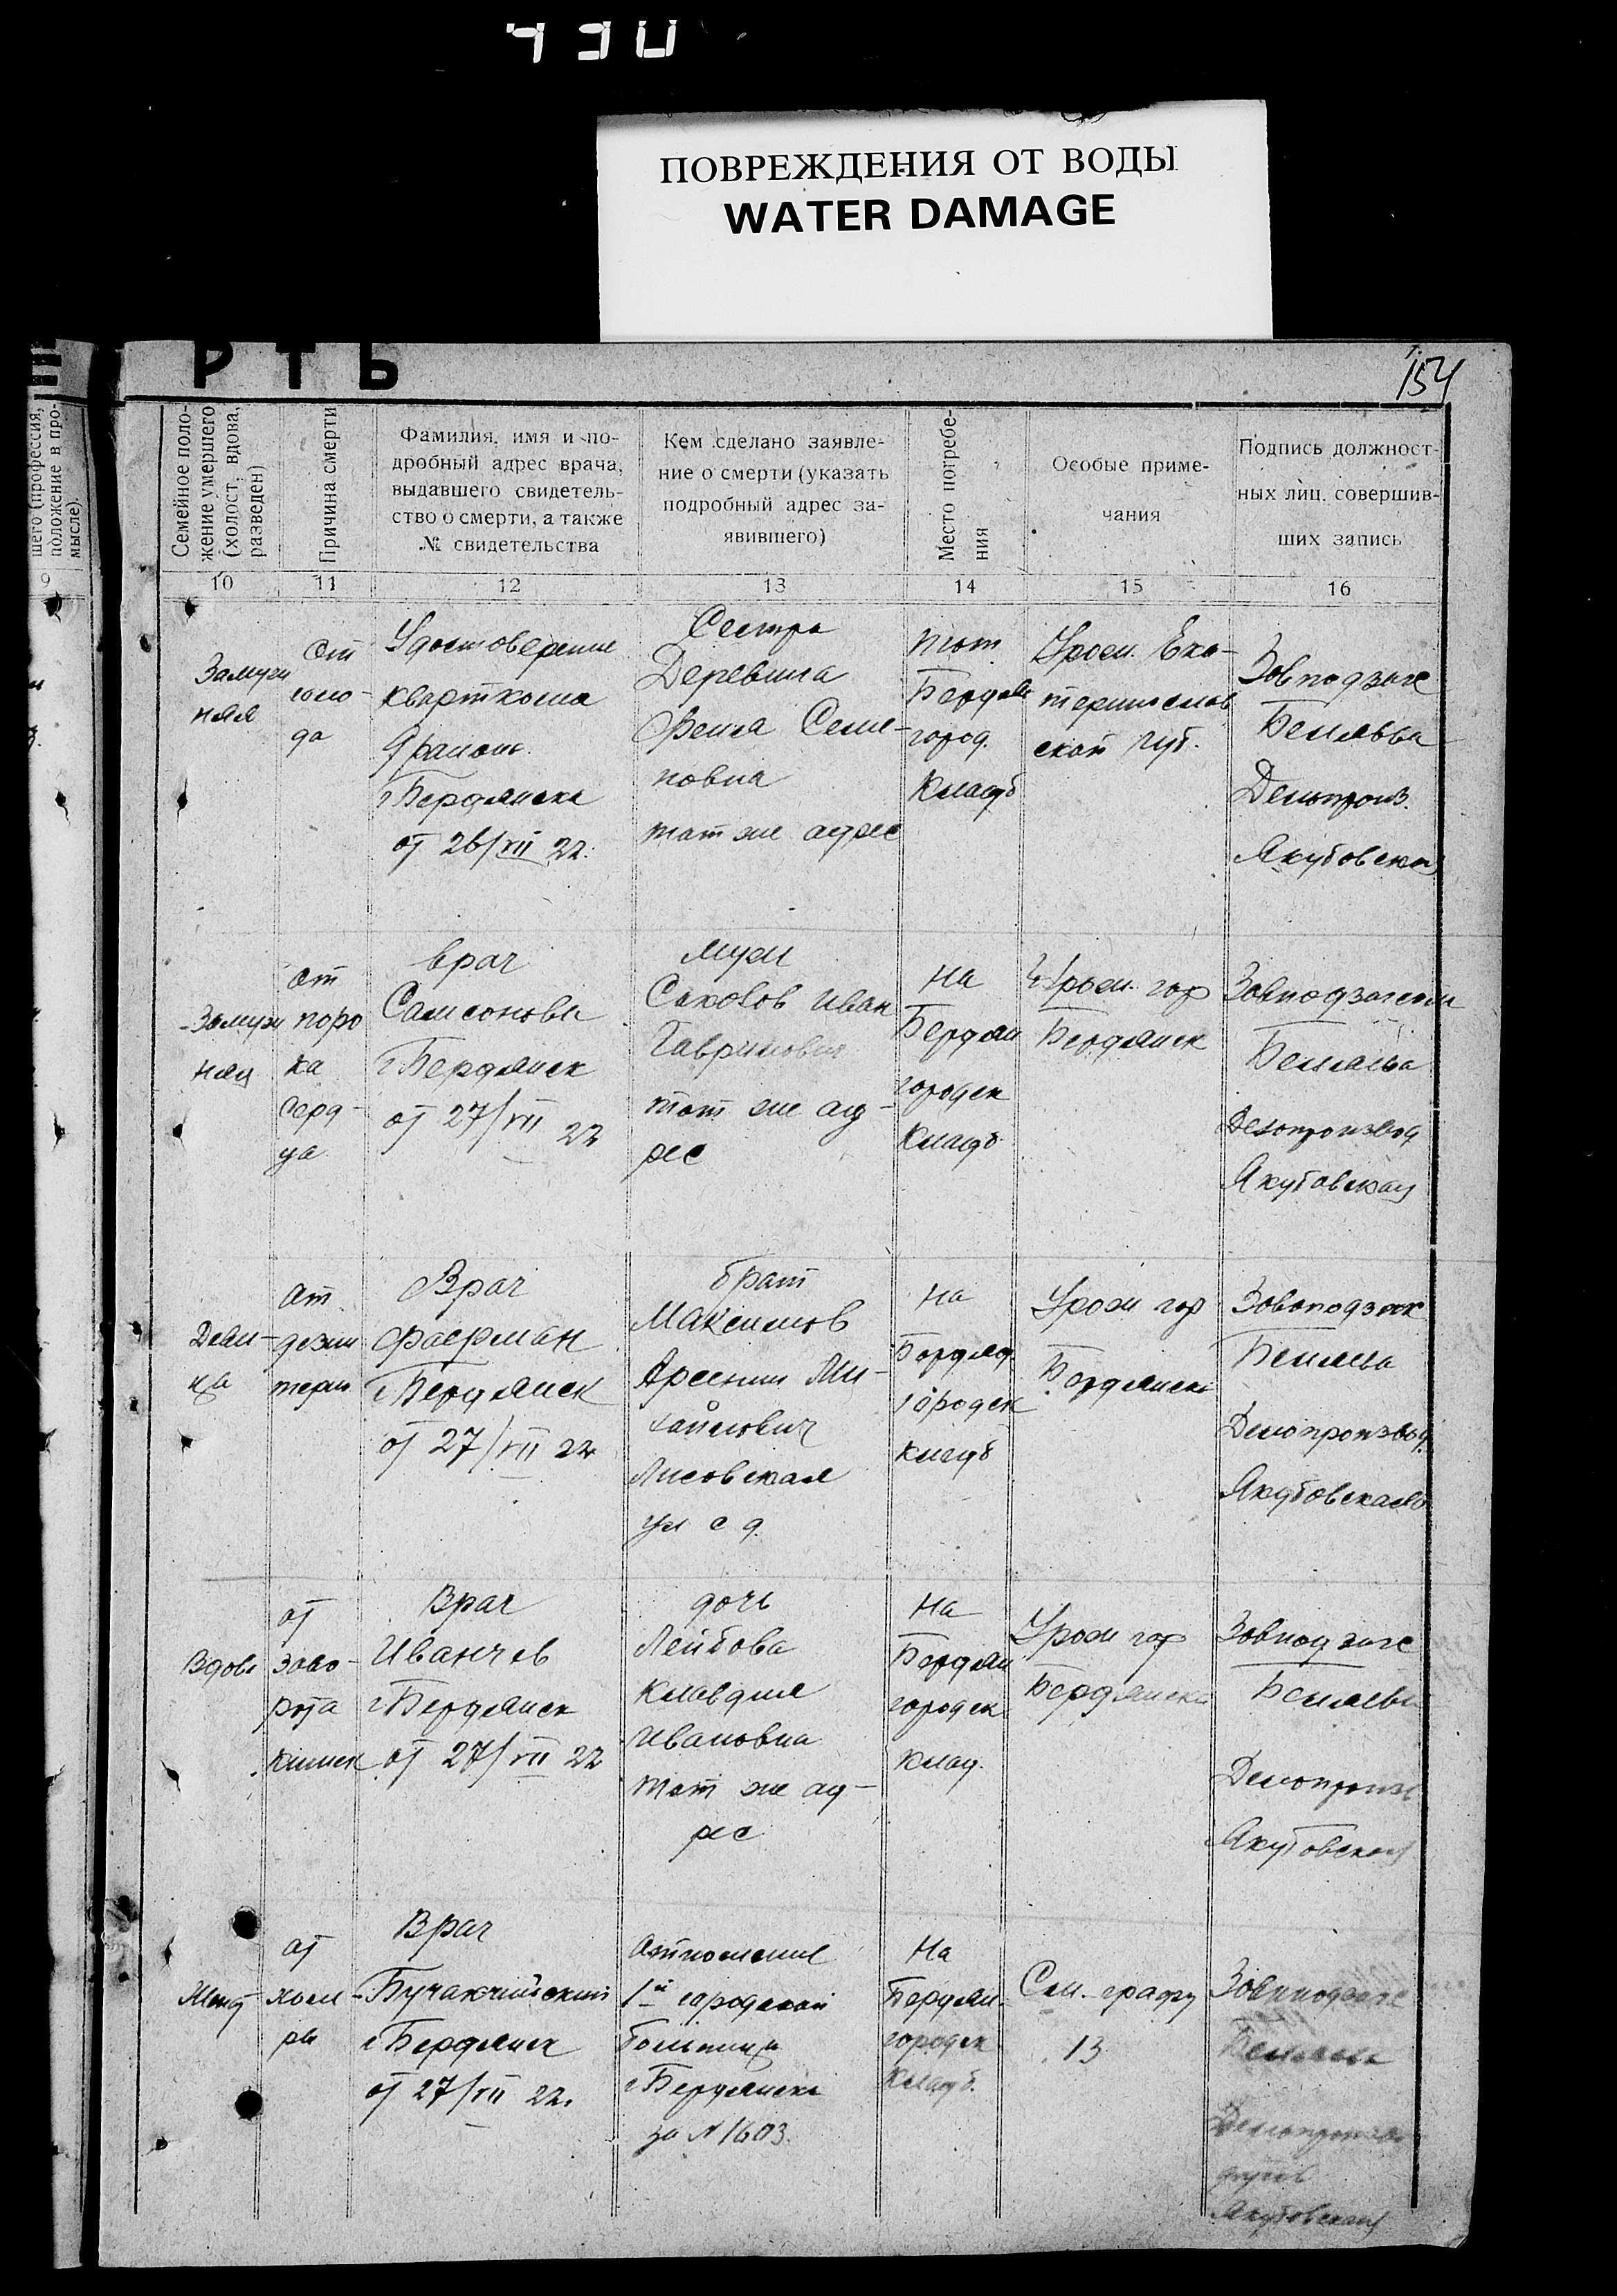 430
ПОВРЕЖДЕНИЯ ОТ ВОДЫ
WATER DAMAGE
Е РТЬ
154
шего (профессия,
положение в про-
мысле).
9
Семейное поло-
жение умершего
(холост, вдова,
разведен)
10
Причина смерти
11
Фамилия, имя и по-
дробный адрес врача,
выдавшего свидетель-
ство о смерти, а также
№ свидетельства
12
Кем сделано заявле-
ние о смерти (указать
подробный адрес за-
явившего)
13
Место погребе-
ния
14
Особые приме-
чания
15
Подпись должност-
ных лиц, совершив-
ших запись
16
Замуж
няя
От
голо-
да
Удостоверение
кварткома
района
г Бердянска
от 26/VII 22.
Сестра
Деревина
Семе-
новна
тот же адрес
Бердян
город.
Кладб
Урож. Ека-
теринослав
ской губ.
Завподзаге
Беляева
Делопроиз.
Якубовская
Замуж
няя
от
поро
ка
серд-
ца
врач
Самсонова
г Бердянск
от 27/VII 22
муж
Соколов Иван
Гаврилович
тот же ад-
рес
На
Бердян
городск
Кладб
Урож. гор
Бердянск
Завподзагсом
Беляева
Делопроизвод
Якубовская
Деви-
ца
от
дезин
терии
Врач
Фаерман
г Бердянск
от 27/VII 22
брат
Максимов
Арсений Ми-
хайлович
Лисовская
ул с д.
На
Бердяд.
городск
кладб
Урож гор
Бердянска
Беляева
Делопроизвод
Якубовская
Вдова
от
заво-
рота
кишек
Врач
Иванчев
г Бердянск
от 27/VII 22
дочь
Лейбова
Клавдия
Ивановна
тот же ад-
рес
На
Бердян
городск
клад.
Урож гор
Бердянска
Завподзаге
Беляева
Делопроизв
Якубовская
от
холе-
ры
Врач
Бучакчийский
г Бердянск
от 27/VII 22.
Отношение
1й городской
больницы
г Бердянска
за N 1603.
На
Бердян-
городск
Кладб.
См. графу
13
Завподзаге
Беляева
Делопроизво
Якубовская